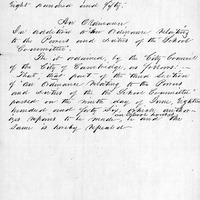 eight hundred and fifty.
An Ordinance
In addition to the Ordinance Relating
to the Powers and Duties of the School
Committee.
Be it ordained, by the City Council
of the City of Cambridge, as follows:—
That, that part of the third Section
of "an Ordinance Relating to the Powers
and Duties of the School Committee"
passed on the ninth day of June Eighteen
hundred and forty six, which author-
on School houses
izes repairs to be made, is and the
same is hereby repealed